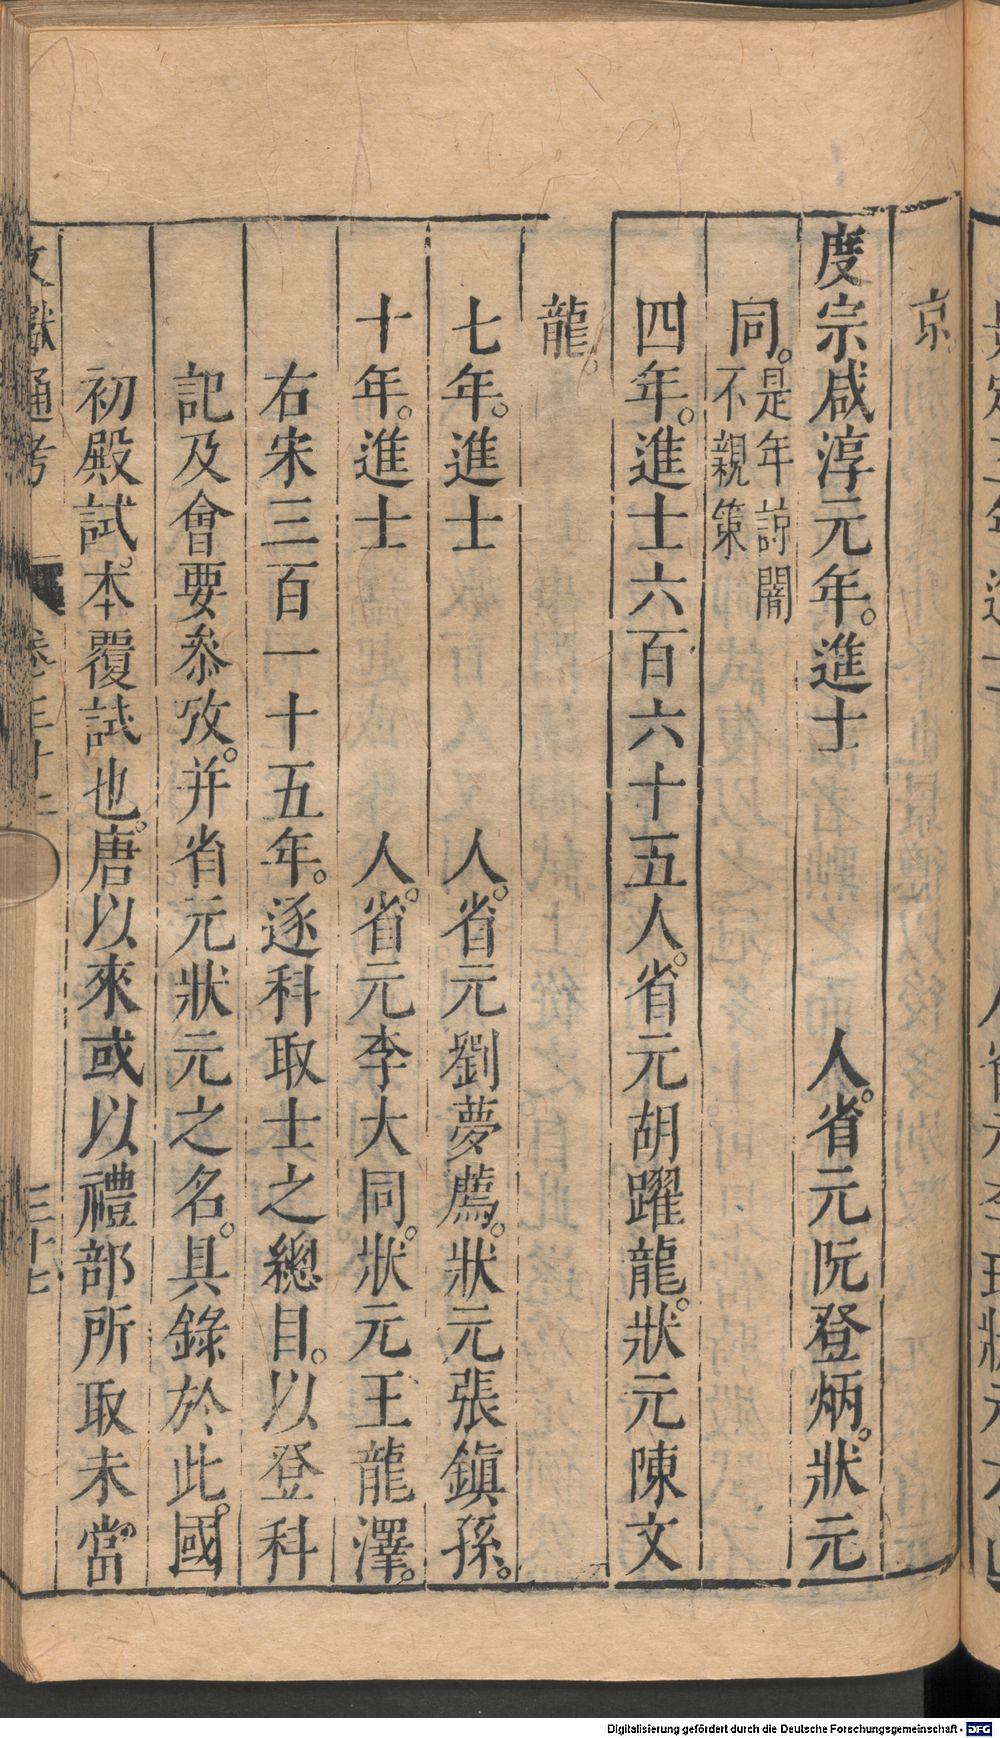 京
度宗咸淳元年。進士　人。省元阮登炳。狀元
同。是年諒闇
不親策
四年。進士六百六十五人。省元胡躍龍。狀元陳文
龍。
七年。進士　人。省元劉夢薦。狀元張鎮孫。
十年。進士　人。省元李大同。狀元王龍澤。
右宋三百一十五年。逐科取士之總目。以登科
記及會要叅攷。并省元狀元之名。具錄於此。國
初殿試。本覆試也。唐以來或以禮部所取未當
文獻通考　卷三十二　三十七
Digitalisierung gefördert durch die Deutsche Forschungsgemeinschaft - DFG